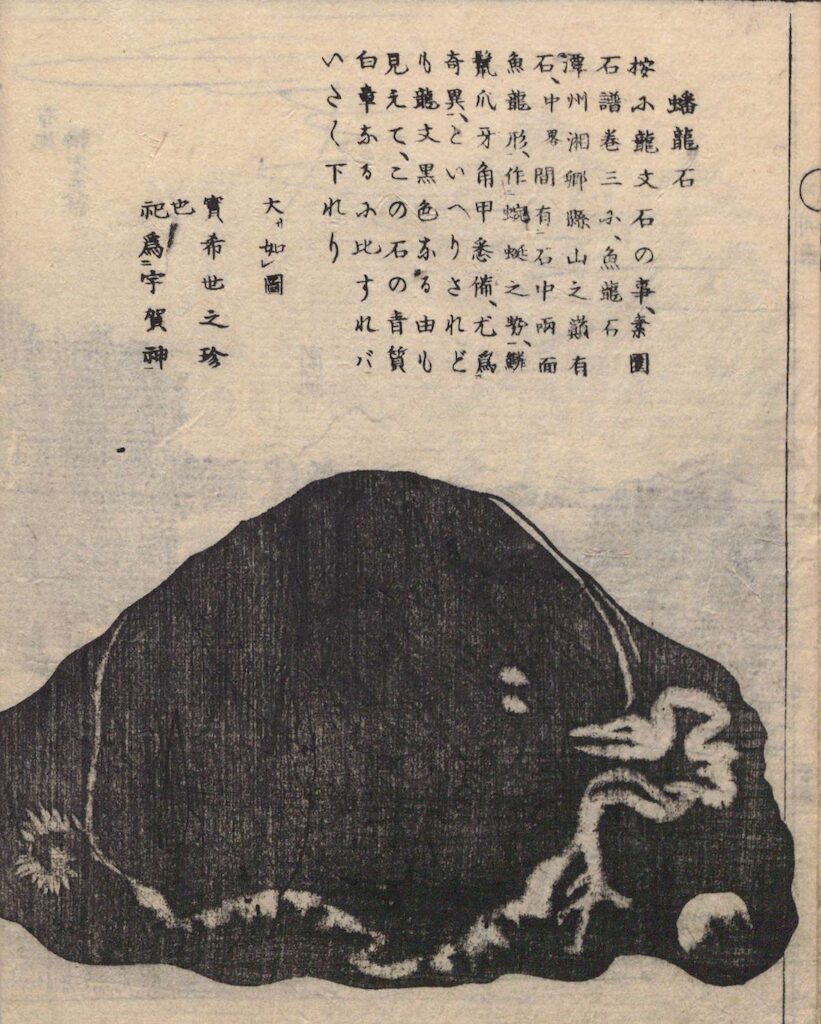 蟠龍石
按に龍文石の事、素園
石譜巻三に、魚龍石
潭州湘郷縣山之巓有
石、中畧間有石中両面
魚龍形、作蜿蜒之勢、鱗
鬣爪牙角甲悉備、尤爲
奇異、といへりされど
も龍文黒色なる由も
見えて、この石の青質
白章なるに比すれバ
いたく下れり
大サ如レ圖
寳希世之珍
也
祀爲二宇賀神一